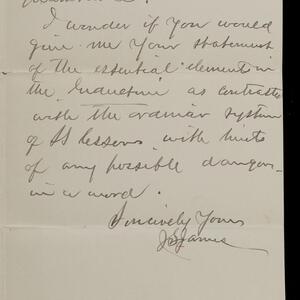 I wonder if you would
give me your statement
of the essential element in
the Inductive as contrasted
with the ordinary system
of SS lessons with hints
of any possible dangers
in a word.
Sincerely Yours
James